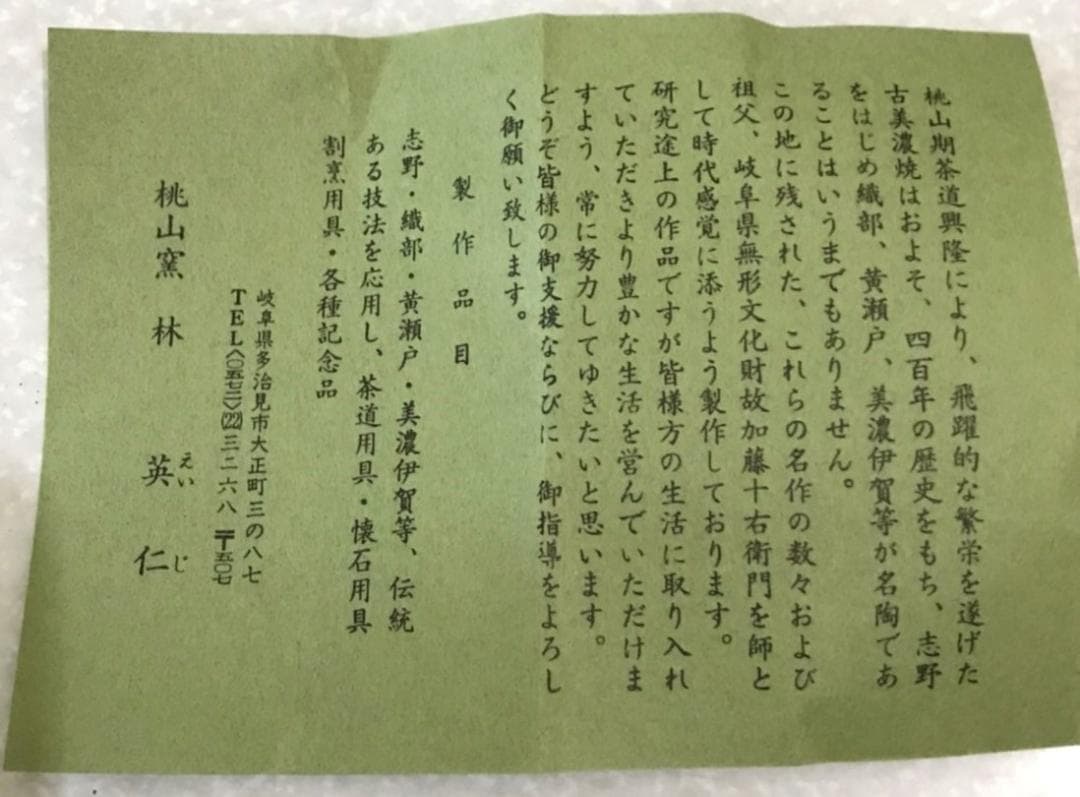 桃山期茶道興隆により、飛躍的な繁栄を遂げた
古美濃焼はおよそ、四百年の歴史をもち、志野
をはじめ織部、黄瀬戸、美濃伊賀等が名陶であ
ることはいうまでもありません。
この地に残された、これらの名作の数々および
祖父、岐阜県無形文化財故加藤十右衛門を師と
して時代感覚に添うよう製作しております。
研究途上の作品ですが皆様方の生活に取り入れ
ていただきより豊かな生活を営んでいただけま
すよう、常に努力してゆきたいと思います。
どうぞ皆様の御支援ならびに、御指導をよろし
く御願い致します。
製作品目
志野・織部・黄瀬戸・美濃伊賀等、伝統
ある技法を応用し、茶道用具・懐石用具
割烹用具・各種記念品
岐阜県多治見市大正町三の八七
TEL〈〇五七二〉(22)三二六八 〒五〇七
桃山窯 林 英仁
えい じ